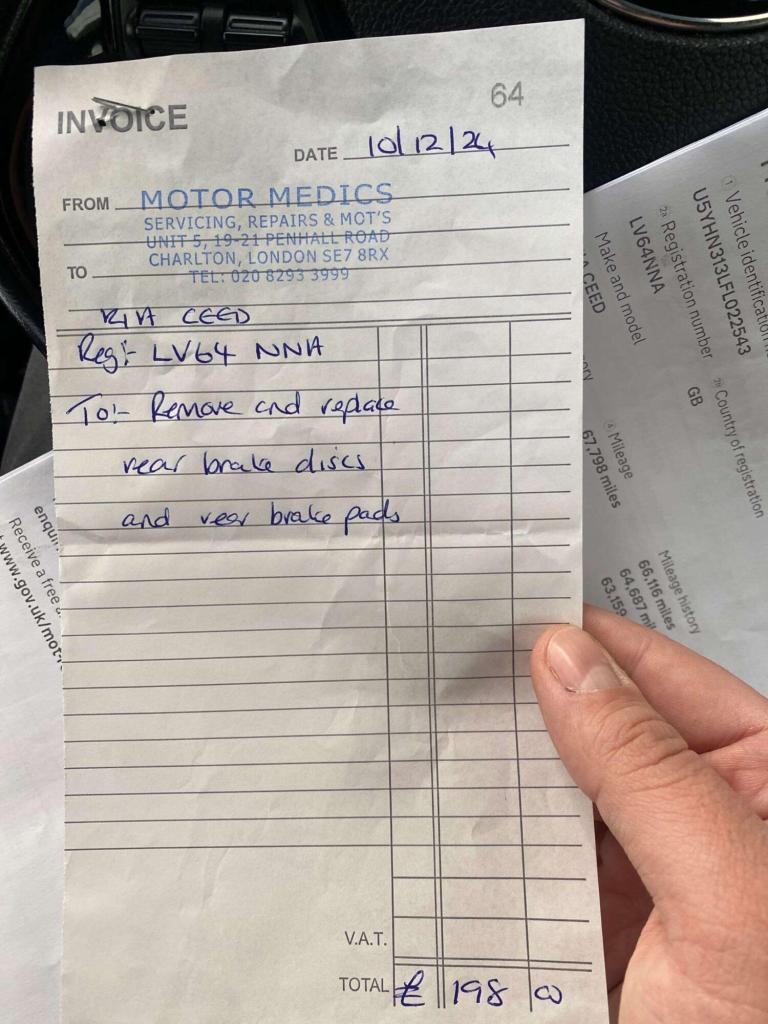 INVOICE
64
DATE 10/12/24
FROM MOTOR MEDICS
SERVICING, REPAIRS & MOT'S
UNIT 5, 19-21 PENHALL ROAD
CHARLTON, LONDON SE7 8RX
TO
TEL: 020 8293 3999
KIA CEED
Reg:- LV64 NNA
To:- Remove and replace
rear brake discs
and rear brake pads
V.A.T.
TOTAL £ 198 00
① Vehicle identification
U5YHN313LFL022543
Registration number
LV64NNA
Country of registration
GB
Make and model
CEED
Mileage
67,798 miles
Mileage history
66,116 miles
64,687 mil
63,159
enquir
Receive a free
www.gov.uk/mot-